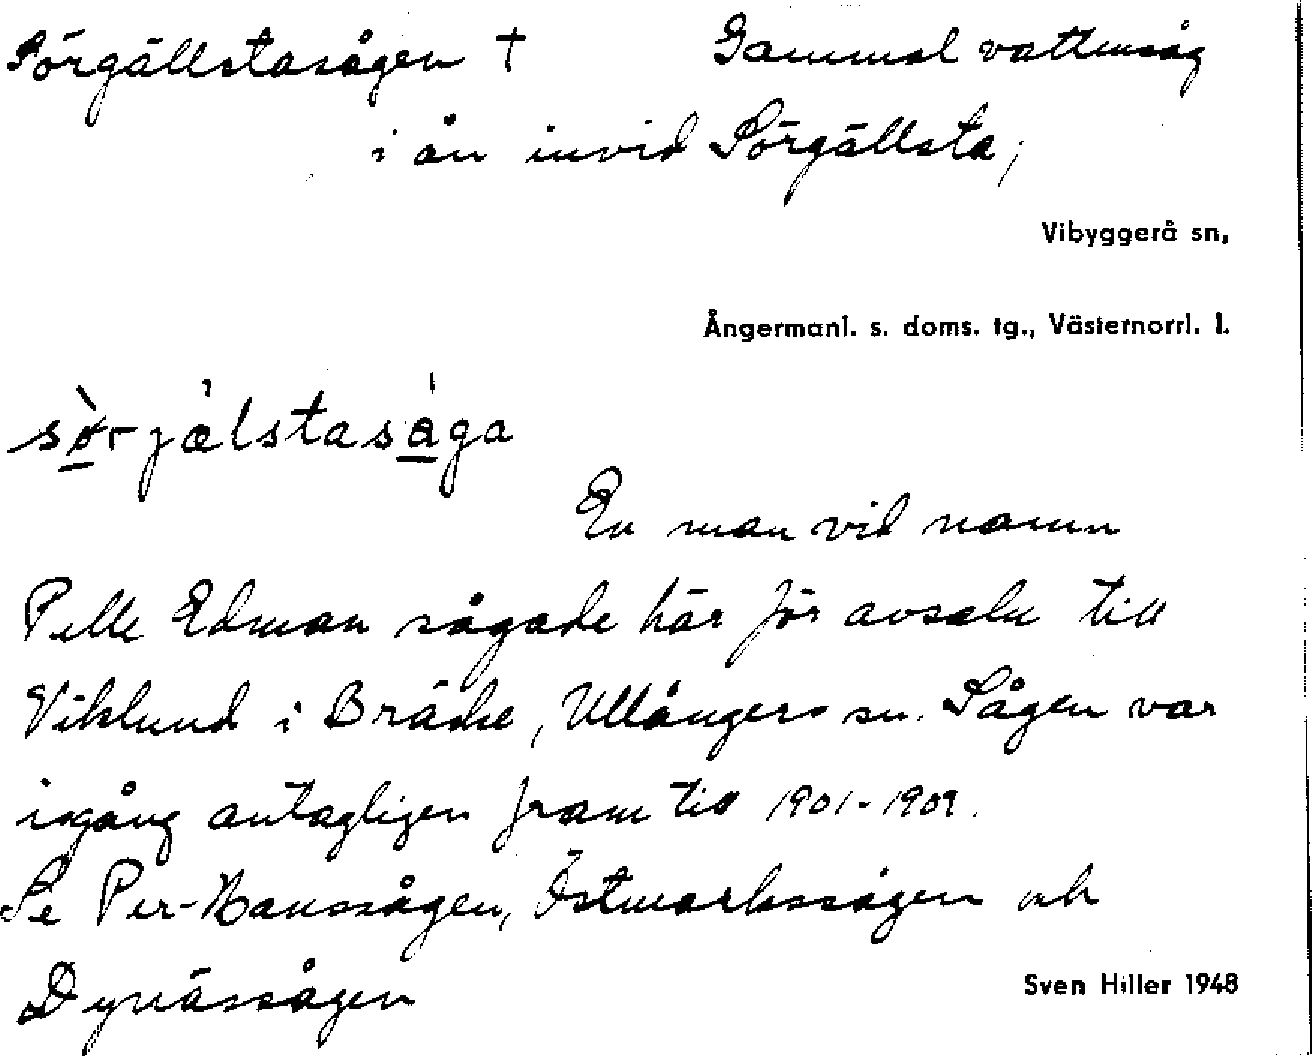 Sörgällstasågen † Gammal vattensåg
i ån invid Sörgällsta;
Vibyggerå sn,
Ångermanl. s. doms. tg., Västernorrl. l.
sø̀rjælstasåga
En man vid namn
Pelle Edman sågade här för avsalu till
Viklund i Bräcke, Ullångers sn. Sågen var
igång antagligen fram till 1901-1909.
Se Per-Hanssågen, Östmarkssågen och
Dynässågen
Sven Hiller 1948